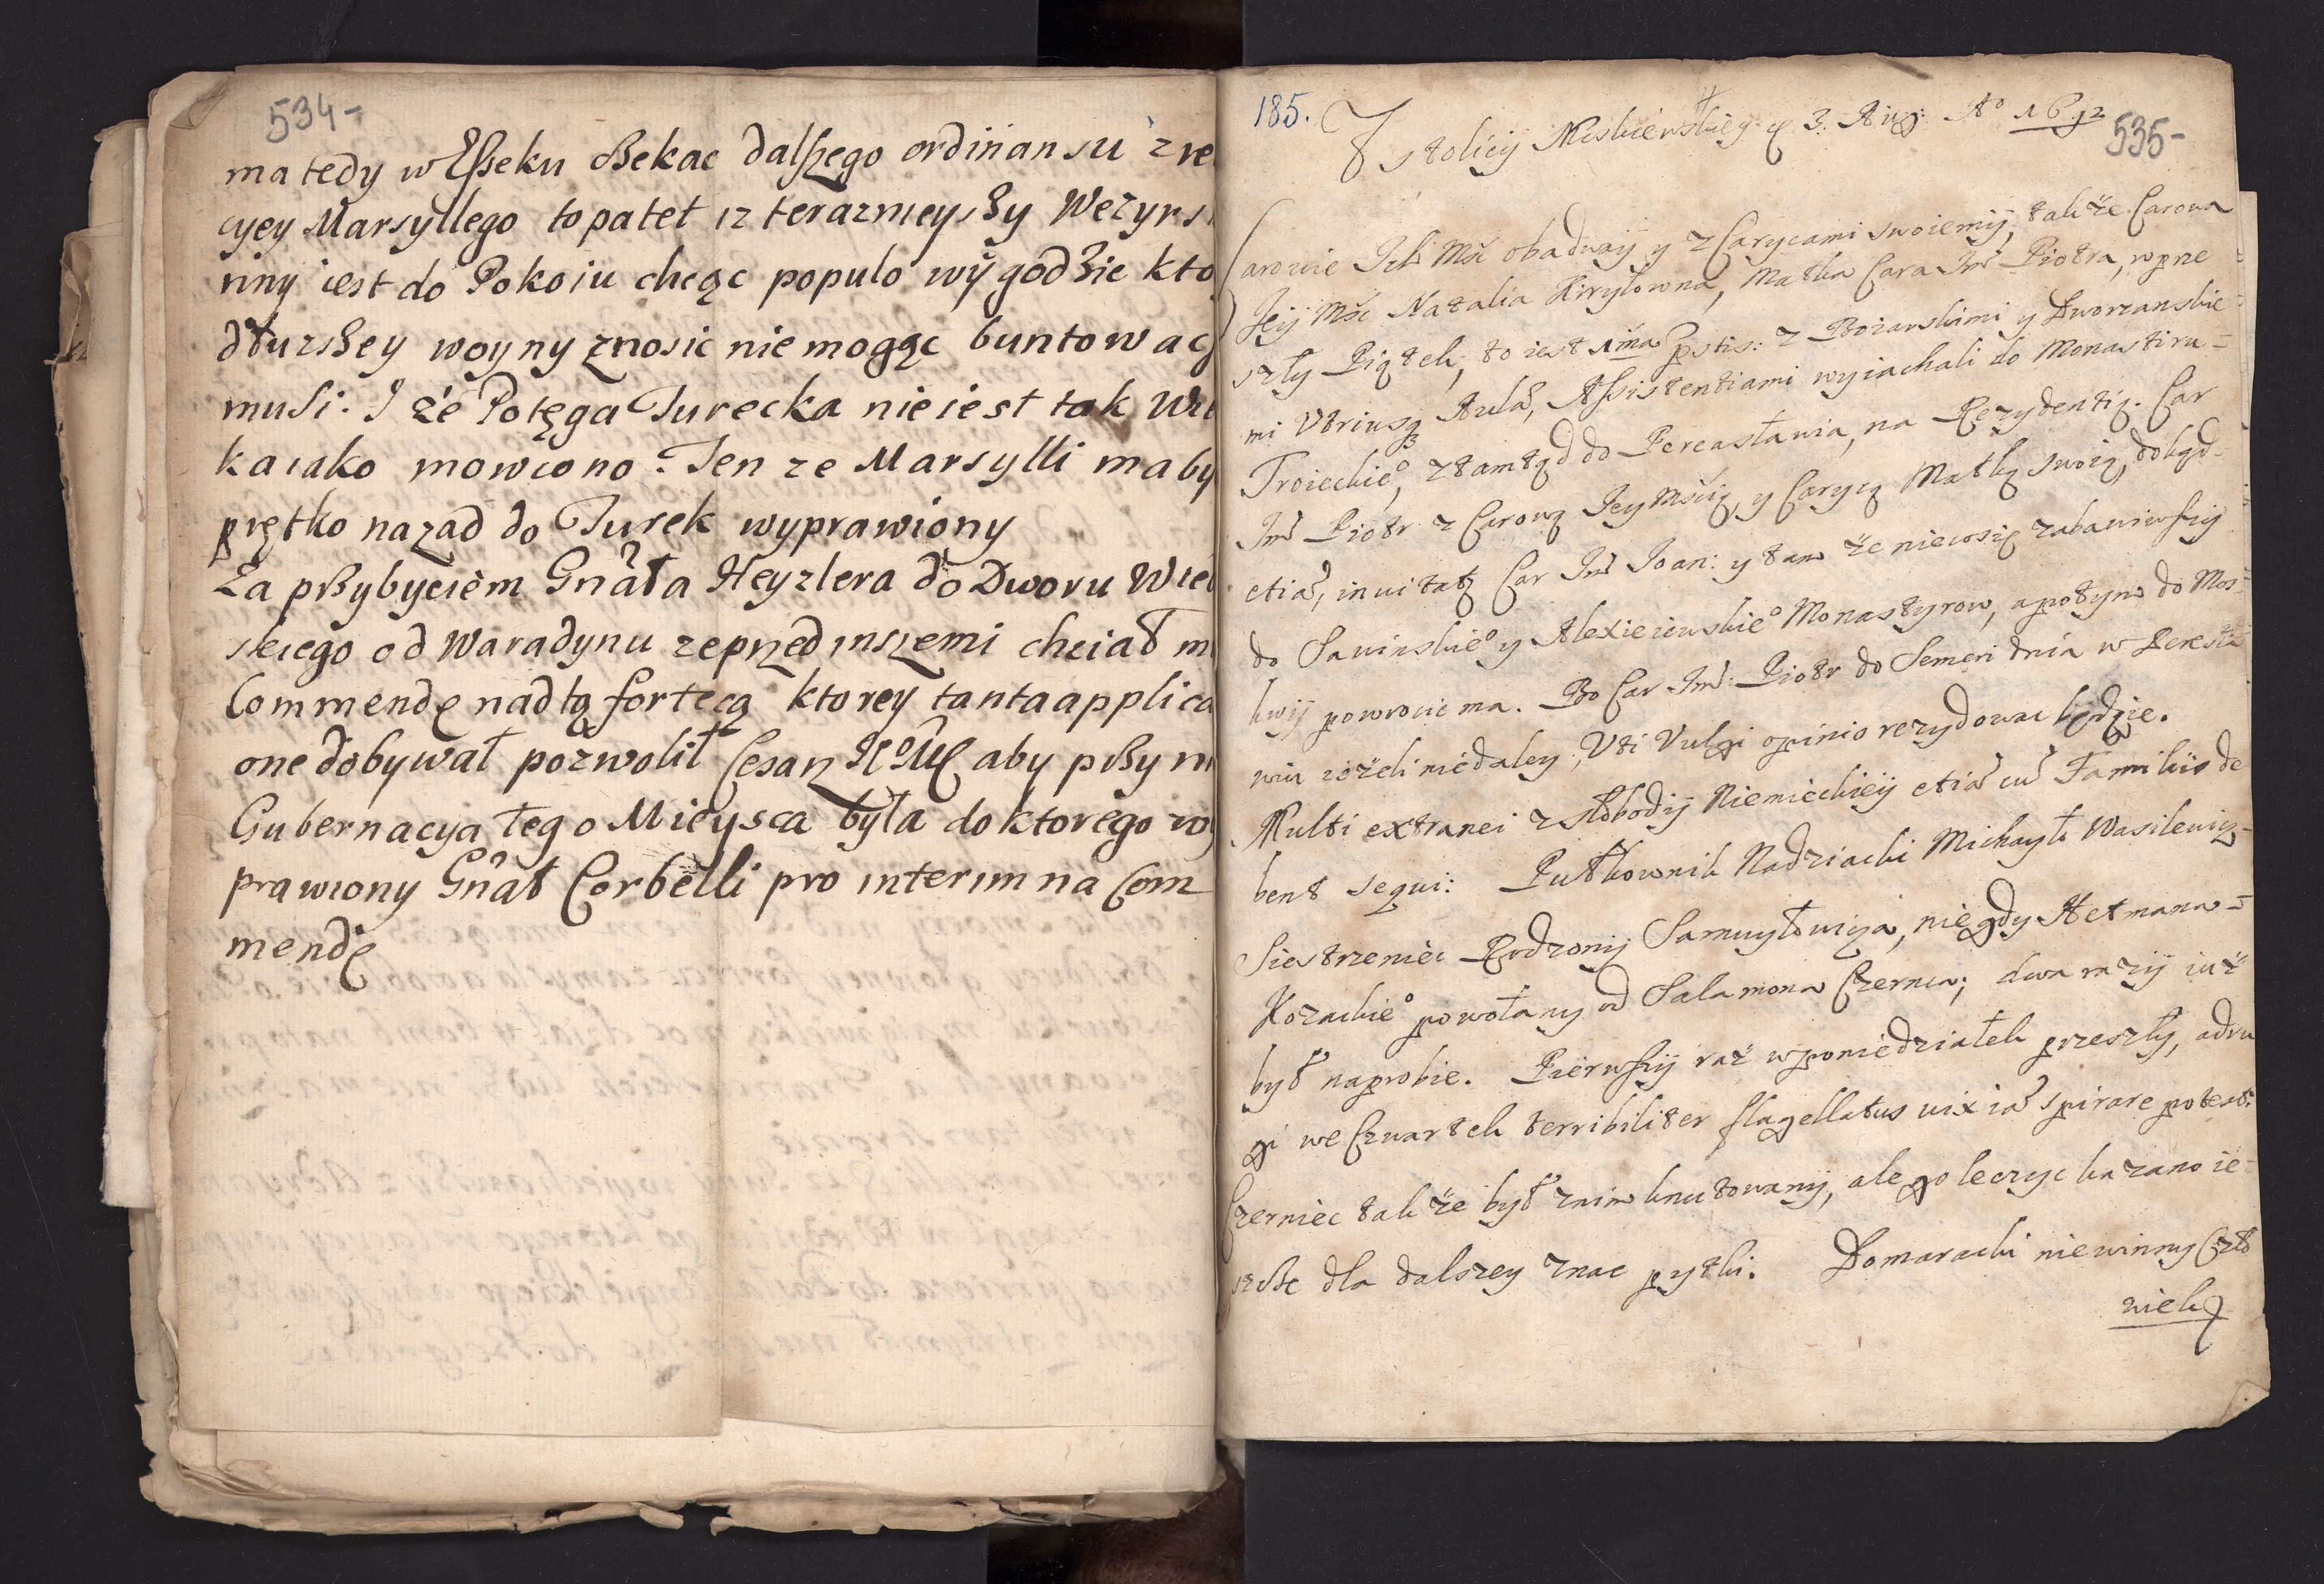 534-
ma tedy w Esseku czekac dalszego ordinansu z re
cyey Marsyllego to patet iz terazmieyszy Wezyr s
nny iest do Pokoiu chcąc populo wygodzie kto
dłuzszey woyny znosic nie mogąc buntowac
musi. I że Potęga Turecka nie iest tak wie
ka iako mowiono. Ten ze Marsylli ma by
prętko nazad do Turek wyprawiony
Za przybyciem Gnała Heyzlera do Dworu Wie
skiego od Waradynu ze przed inszemi chciał m
Commendę nad tą fortecą ktorey tanta applica
one dobywał pozwolił Cesarz aby przy ni
Gubernacya tego Mieysca była do ktorego wy
prawiony Gnał Corbelli pro interim na Com
mendę
185.
535-
Z stolicij Moskiewskiey d 3. Aug: Aº 1692
Carowie Ich Mć obadwaij y z Carycami swoiemij, także Carowa
Jeij Mśc Natalia Kiryłowna, Matka Cara Jmć Piotra, w prze
szły Piątek, to iest 1ma pstis: z Boiarskimi y Dworzanskie
mi Utriusq Aulæ, Assistentiami wyiachali do Monastiru-
Troieckieº, ztamtąd do Pereasławia, na Rezydentią. Car
Jmć Piotr z Carową Jey Mścią, y Carycą Matką swoią, dokąd
etiã, invitatq Car Jmć Joan: y tam że niecosię zabawiwszij
do Sawinskieº y Alexieiewskieº Monastyrow, a potym do Mos-
kwij powrocic ma. Bo Car Jmć: Piotr do Semeri dnia w Pereslã
wiu ieżeli niedaley, Uti Vulgi opinio rezydowac będzie.
Multi extranei z słobodij Niemieckieij etiã cũ Familiis de
bent sequi: Pułkownik Nadziacki Michayło Wasilewicz-
Siestrzeniec Rodzonij Samuyłowicza, niegdy Hetmana-
Kozackieº powołany od Salamona Czernca; dwa razij iuż
był na probie. Pierwszij raz w poniedziałek przeszły, a dru
gi we Czwartek terribiliter flagellatus vix iã spirare potest.
Czerniec także był z nim knutowany, ale go leczyc kazano ie-
szcze dla dalszey znac pytki. Domaracki niewinny Czło
wiek